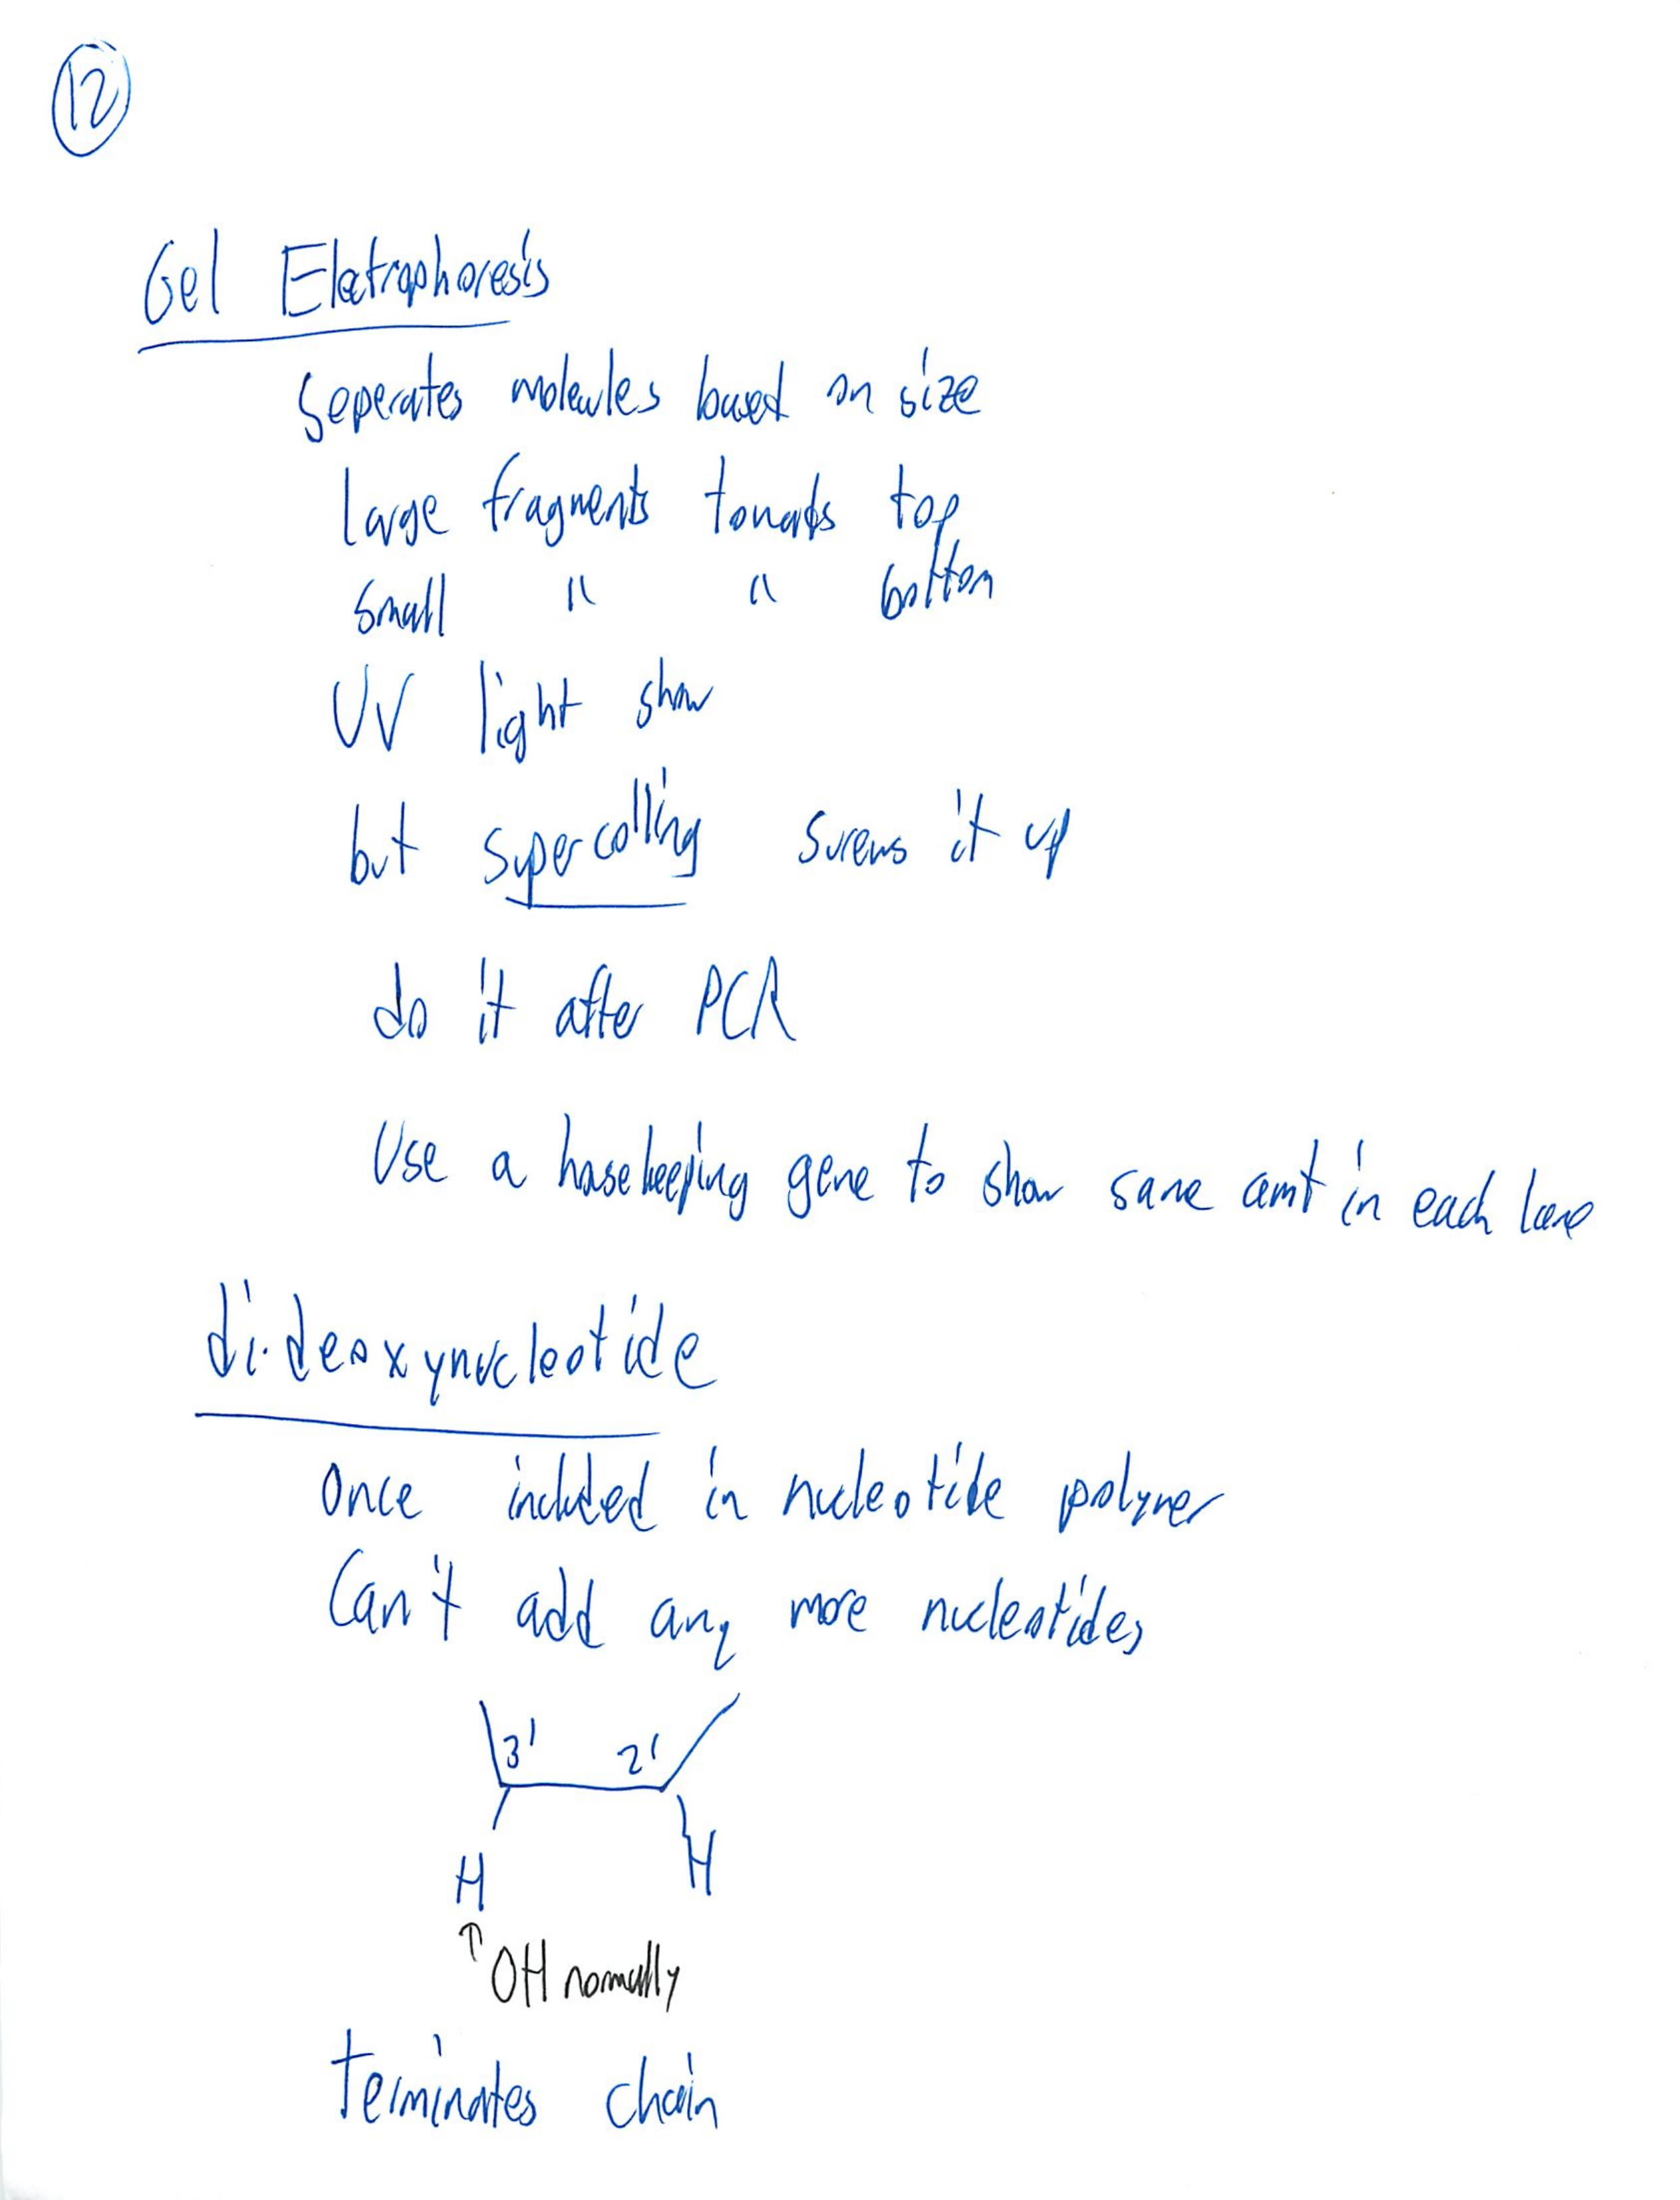 12
Gel Eletrophoresis
Seperates molecules based on size
large fragments towards top
small " " bottom
UV light show
but supercolling screws it up
do it after PCR
Use a housekeeping gene to show same amt in each lane
di-deoxynucleotide
Once included in nucleotide polymer
Can't add any more nucleotides
3' 2'
H H
↑ OH normally
terminates chain